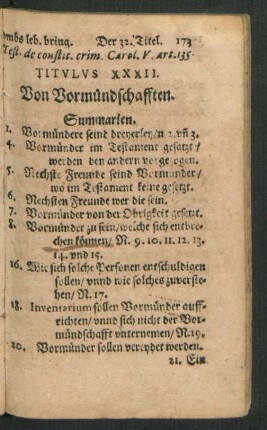 ombs leb. bring. Der 32. Titel. 173
Test. de constit. crim. Carol. V. art. 135.
TITVLVS XXXII.
Von Vormündschafften.
Summarien.
1. Vormündere seind dreyerley/n 2. vñ 3.
4. Vormünder im Testament gesatzt/
werden den andern vorgezogen.
5. Nechste Freunde seind Vormünder/
wo im Testament keine gesetzt.
6. Nechsten Freunde wer die sein.
7. Vormünder von der Obrigkeit gesetzt.
8. Vormünder zu sein/welche sich entbre-
chen können/ N. 9. 10. 11. 12. 13.
14. vnd 15.
16. Wie sich solche Personen entschuldigen
sollen/ vnnd wie solches zuverste-
hen/ N. 17.
18. Inventarium sollen Vormünder auff-
richten/ vnnd sich nicht der Vor-
mündschafft vnternemen/ N. 19.
20. Vormünder sollen vereydet werden.
21. Ein